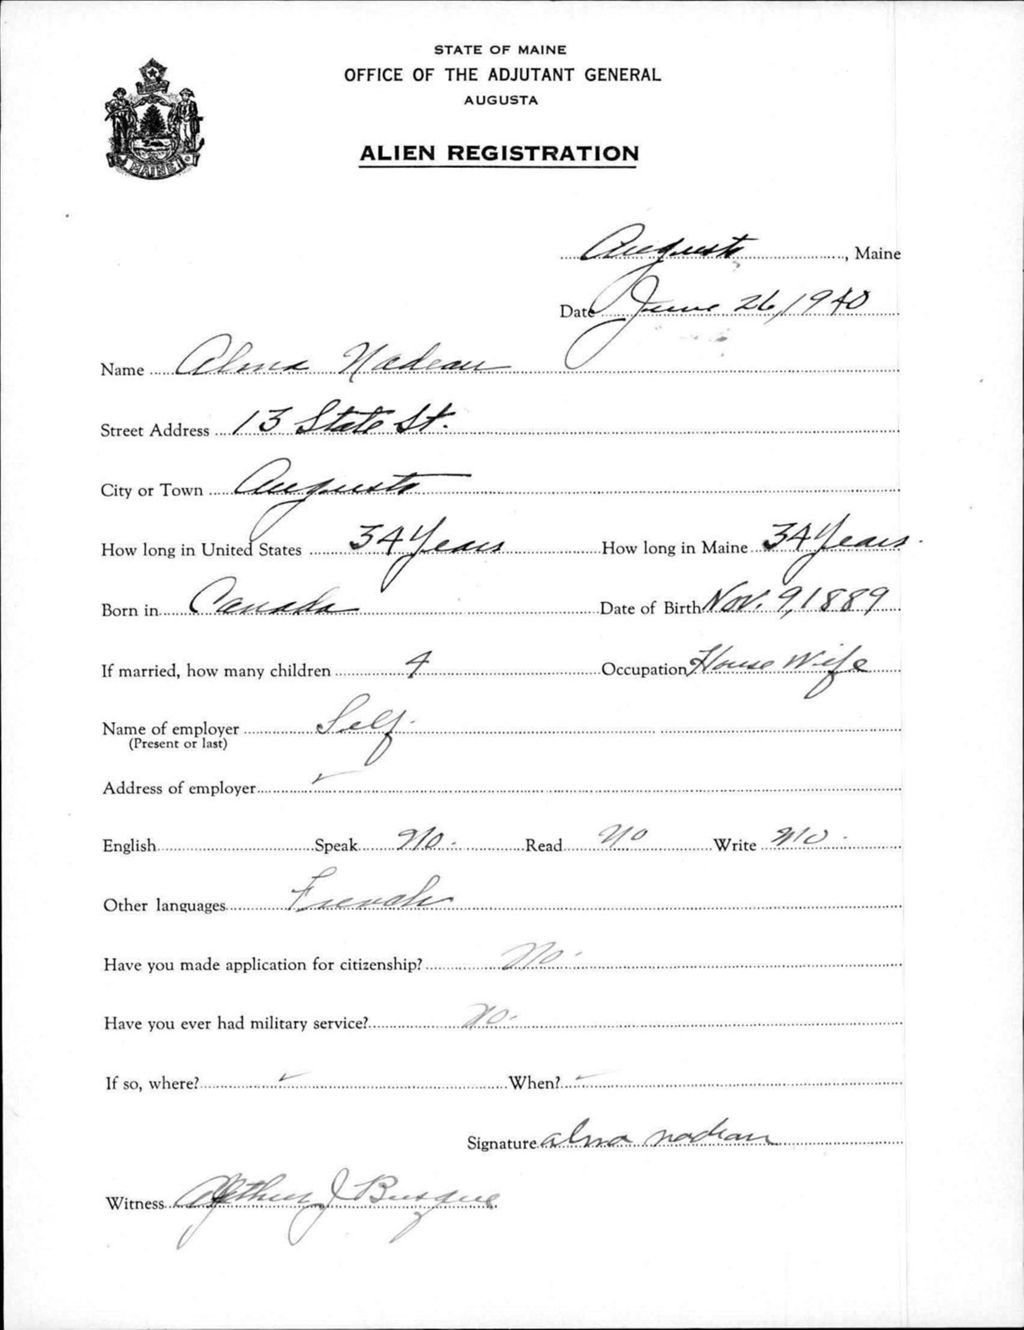 STATE OF MAINE
OFFICE OF THE ADJUTANT GENERAL
AUGUSTA
ALIEN REGISTRATION
MAINE
Augusta, Maine
Date June 26, 1940
Name Alma Nadeau
Street Address 13 State St.
City or Town Augusta
How long in United States 34 Years How long in Maine 34 Years
Born in Canada Date of Birth Nov. 9, 1889
If married, how many children 4 Occupation House Wife
Name of employer Self.
(Present or last)
Address of employer ✓
English Speak No. Read No Write No.
Other languages French
Have you made application for citizenship? No.
Have you ever had military service? No.
If so, where? ✓ When? ✓
Signature alma nadeau
Witness Arthur J Busque